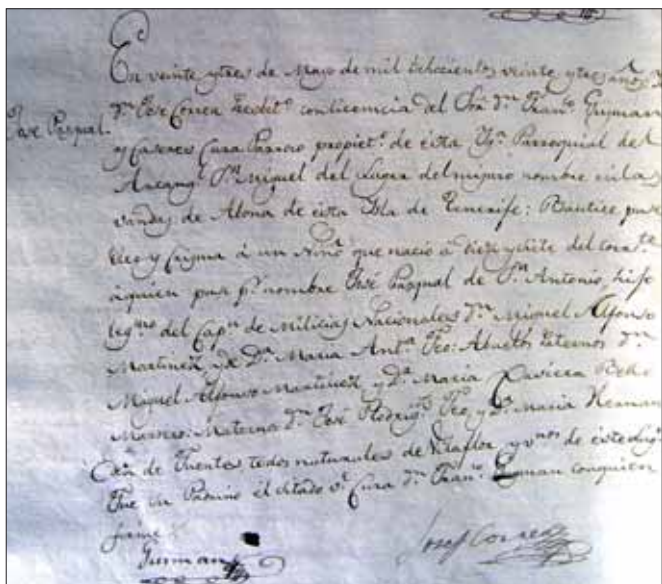 José Pasqual.
En veinte y tres de Mayo de mil ochocientos veinte y tres años
Dn. José Correa Presbto. con licencia del Sor. Dn. Franco. Guzman
y Caseres Cura Parroco propieto. de esta Yga. Parroquial del
Arcangl. Sn. Miguel del Lugar del mismo nombre en las
vandas de Abona de esta Isla de Tenerife: Bautice puse
Oleo y Crisma á un Niño que nació á dies y siete del corrte.
á quien puse pr. nombre José Pasqual de Sn. Antonio, hijo
legmo. del Capn. de Milicias Nacionales Dn. Miguel Alfonso
Martinez y de Da. Maria Anta. Feo: Abuelos Paternos Dn.
Miguel Alfonso Martinez y Da. Maria Xaviera Bello
Marrero: Maternos Dn. José Rodrigs. Feo, y Da. Maria Hernan
de Fuentes todos naturales de Vilaflor, y vnos. de este
Fue su Padrino el citado Vl. Cura Dn. Franco. Guzman con quien
firmé
Guzman
Josef Correa